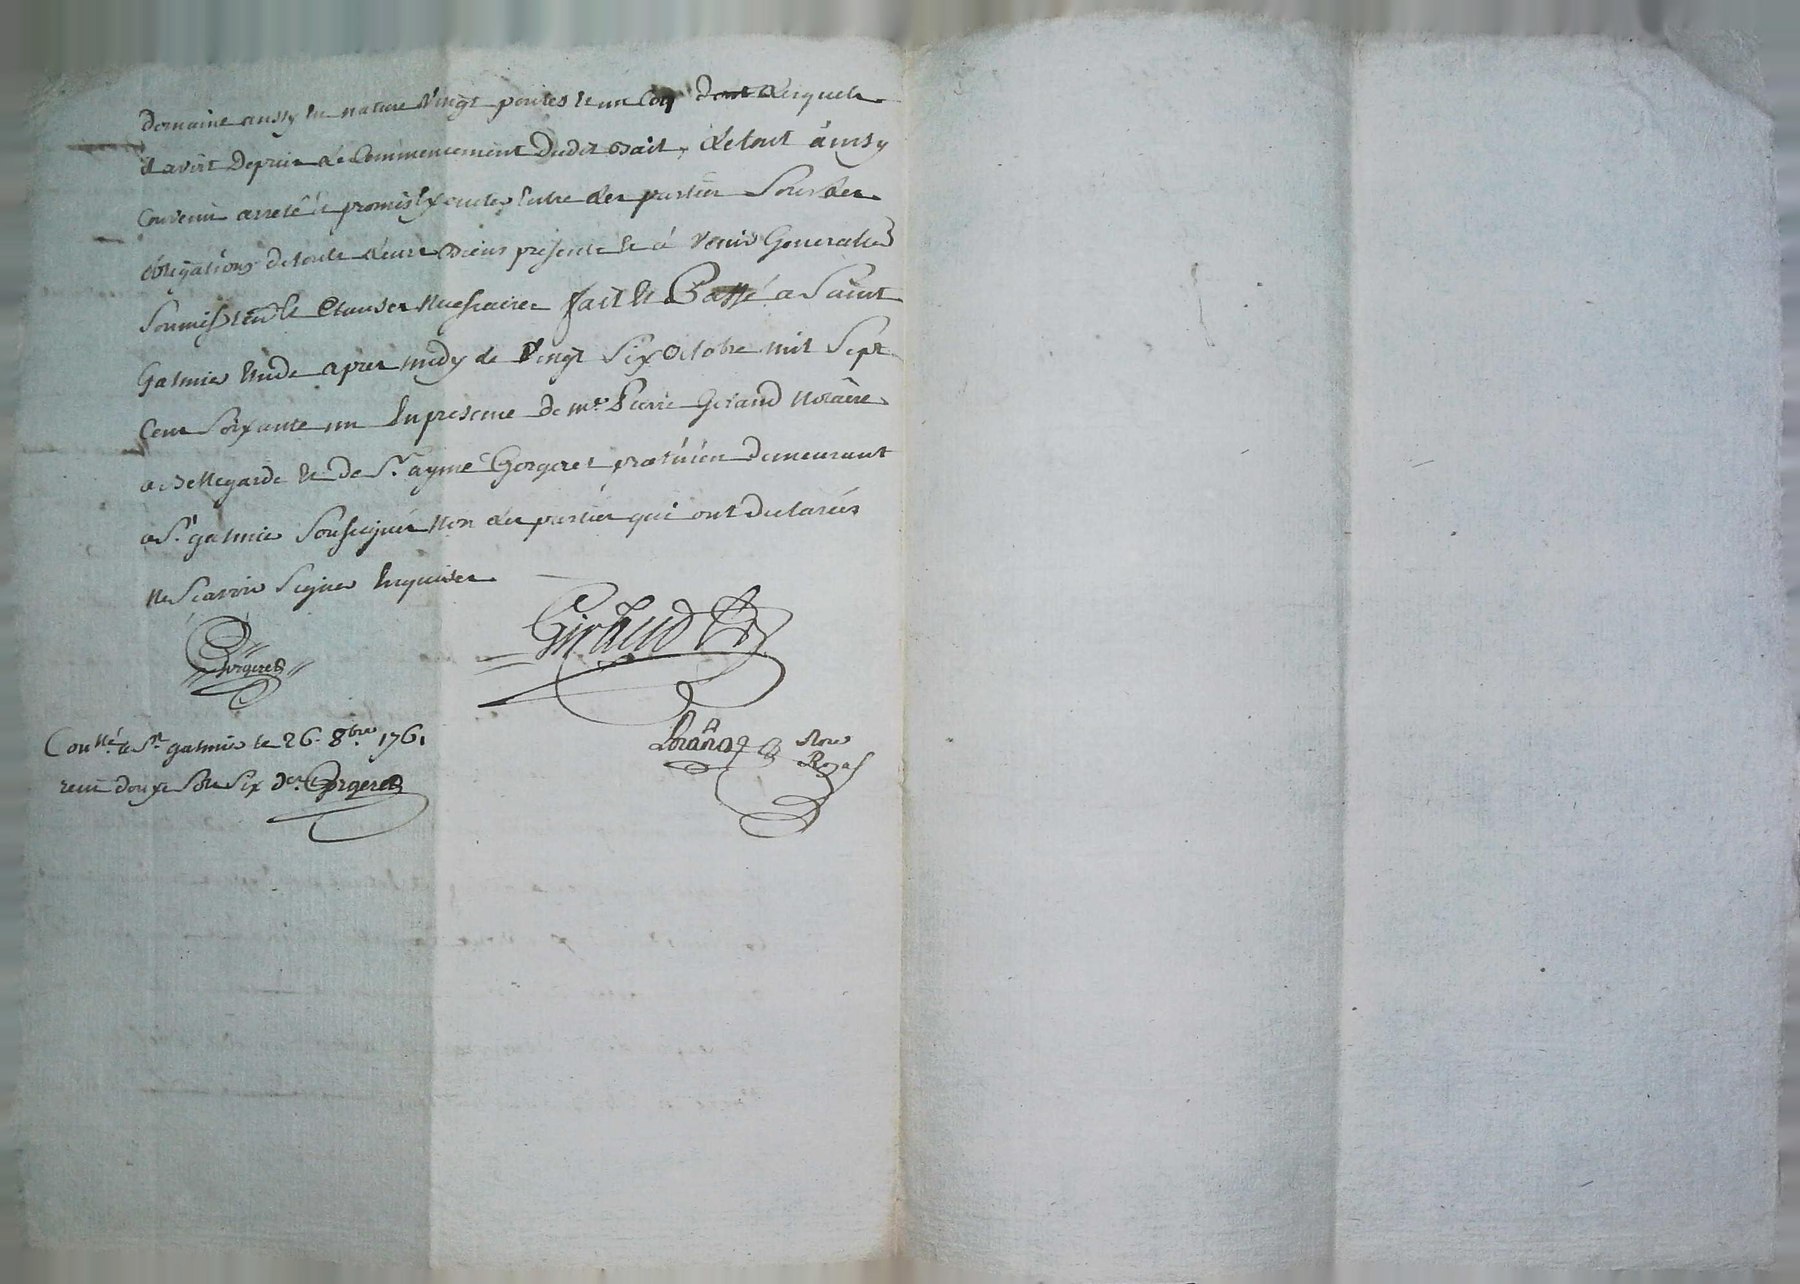 Domaine aussy en nature vingt poules et un Coq dont desquels
il avoit Depuis le Commencement dudit bail, le tout ainsy
Convenu arreté et promis executer entre les parties Sous les
obligations de touts leurs biens presents et à venir Generalles
Soumissions et Clauses necessaires fait et Passé a Saint
Galmier etude apres midy le vingt Six Octobre mil Sept
Cent Soixante un En presence de me. Pierre Giraud Notaire
a Bellegarde et de Sr. aymé Gorgeret praticien demeurant
a St. galmier Soussignés non les parties qui ont declarées
ne Scavoir Signer Enquises
Gorgeret
Giraud
Conllé. a St. galmier le 26. 8bre. 1761
recu douze Sols Six drs. Gorgeret
Nore
Royal